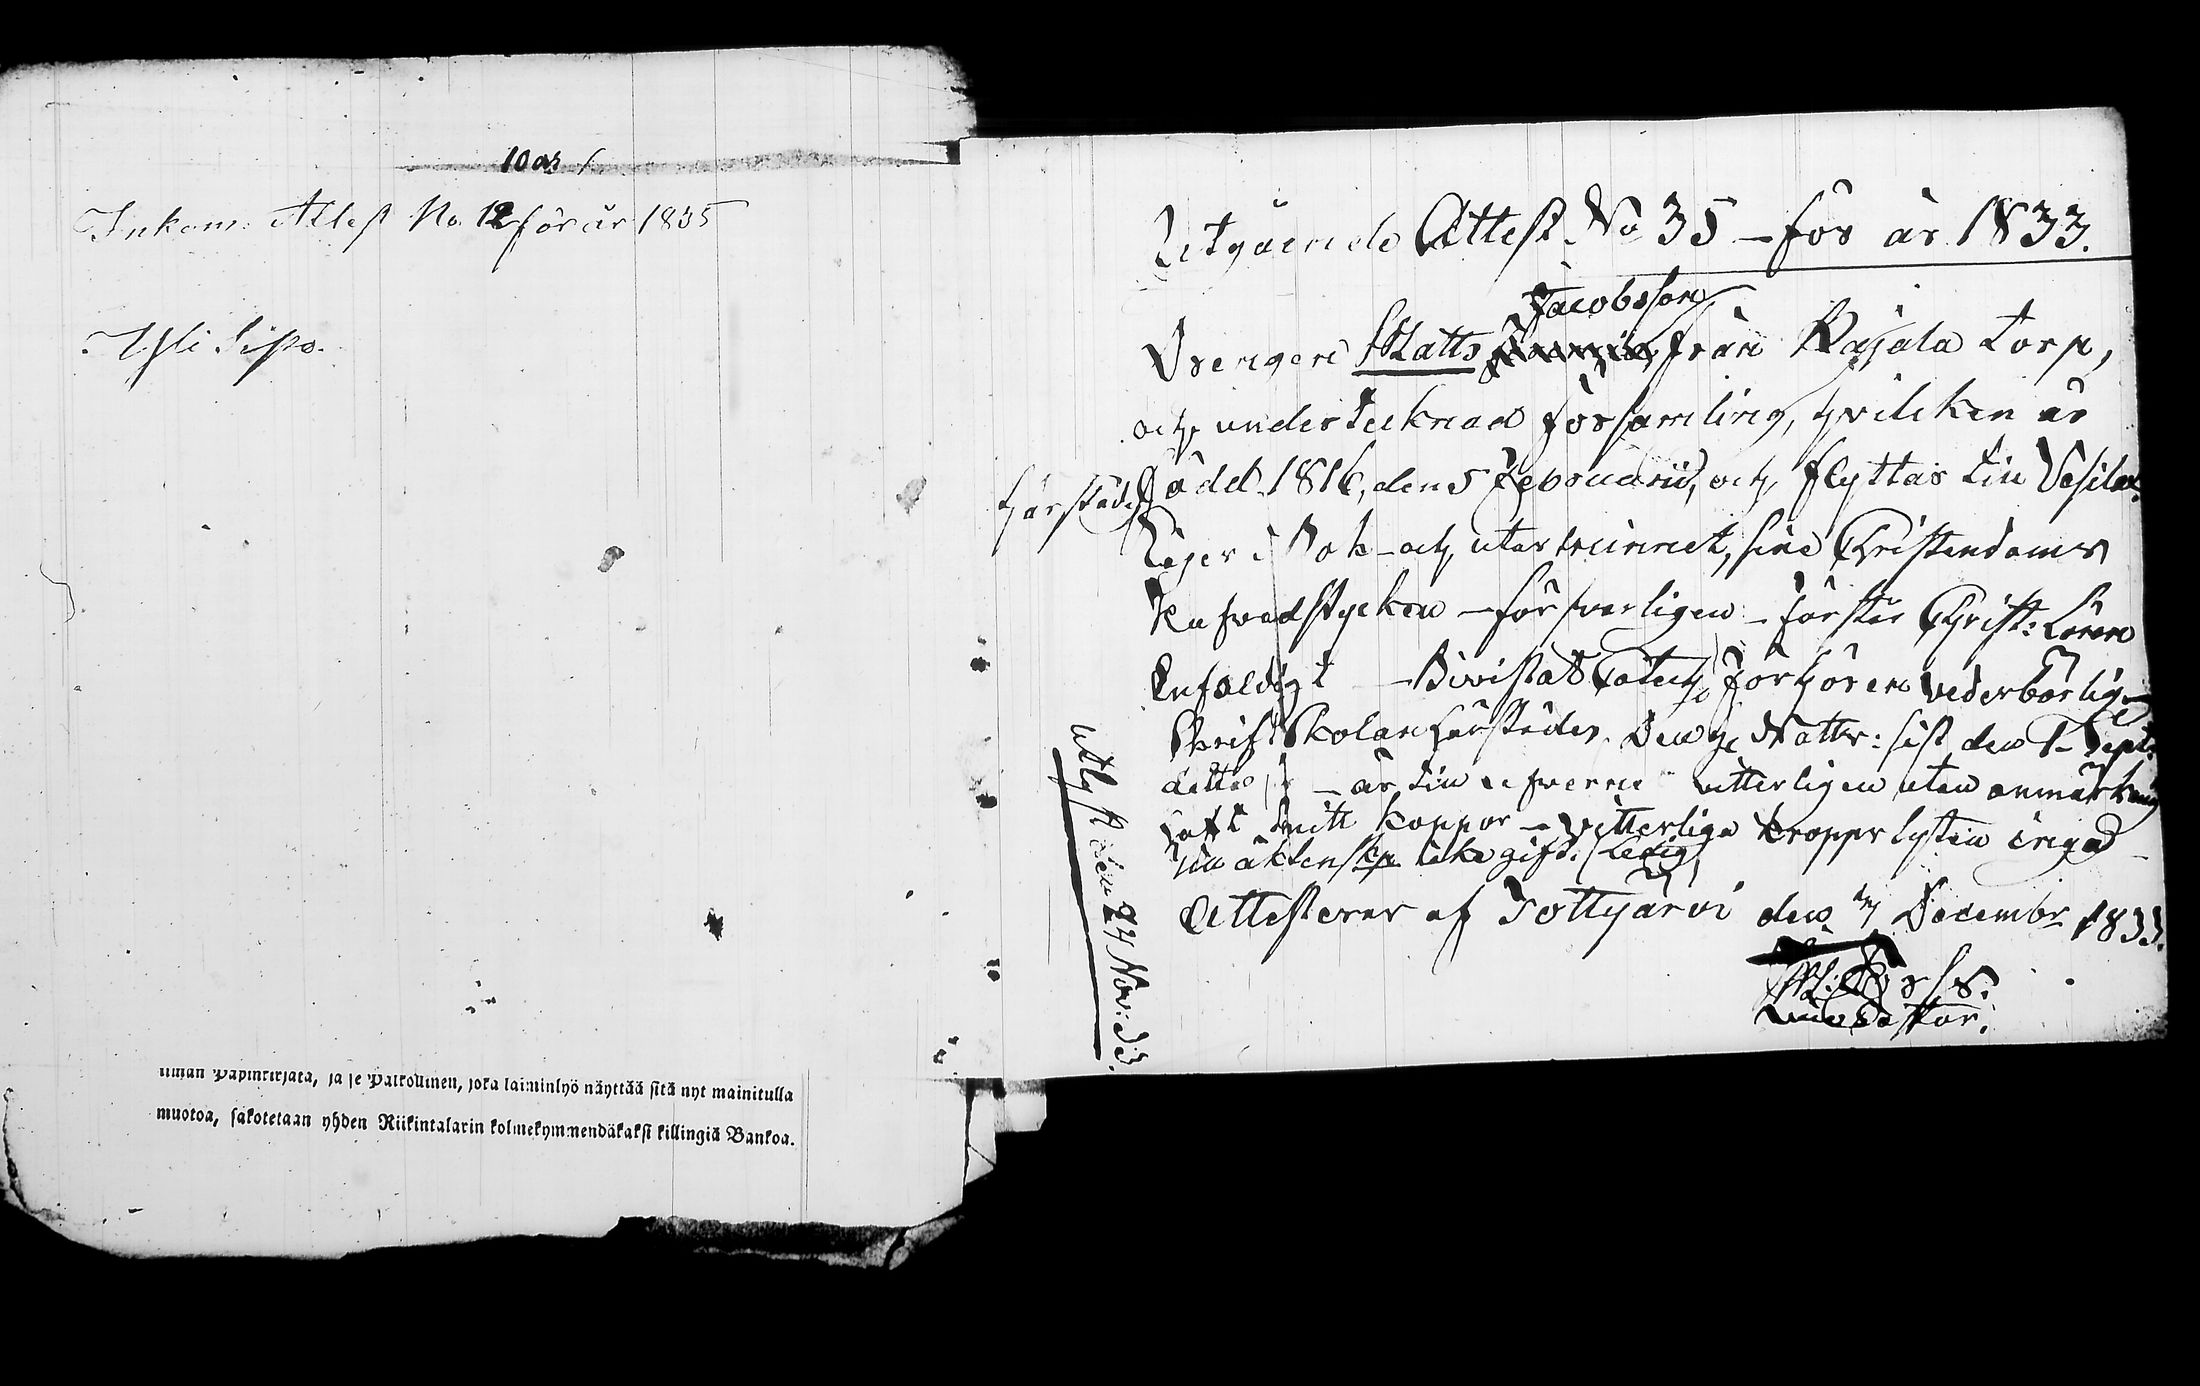 Inkom: Attest No 12 för år 1835
Yli Sipo.
ilman Papinkirjata, ja se Palkollinen, joka laiminlyö näyttää sitä nyt mainitulla
muotoa, sakotetaan yhden Riikintalarin kolmekymmendäkaksi killingiä Bankoa.
Utgående Attest No 35 – för år 1833.
Jacobsson
Drengen Matts från Rajala Torp,
och undertecknad församling, hvilcken är
född 1816, den 5 Februarii, och flyttar till Vesilax
härstädes
Läser i Bok och utur minnet, sine Christendoms
hufvudstycken – försvarligen – förstår Christ: Läran
Enfaldigt – Bivistat Catech: Förhören vederbörligen
Skrift Skolan härstädes. Den H. Nattv: sist den 1 Sept:
detta – är till lefverne vitterligen utan anmärkning
haft koppor – vitterliga kropps lyten inga
till äktenskp icke gift. (Ledig)
Attesterar af Tottijärvi den 7 Decembr 1833.
utlyst den 24 Nov: 33.